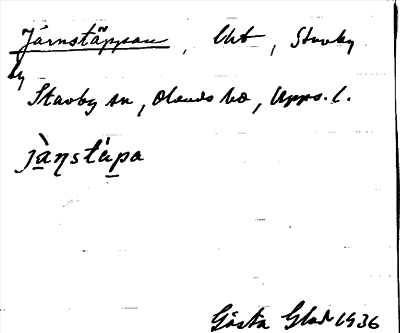 Järnstäppan, Urt, Stavby
by
Stavby sn, Olands hd, Upps. l.
jànstápa
Gösta Glad 1936